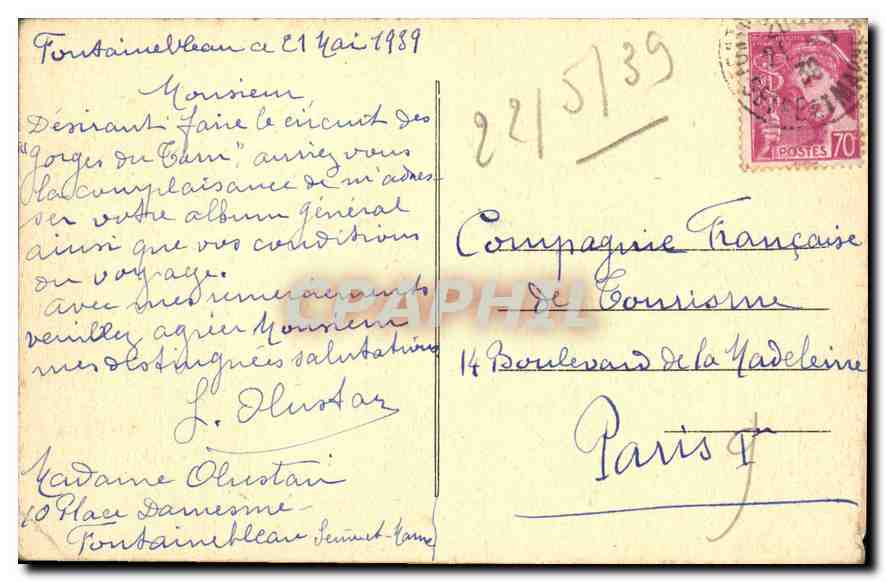 Fontainebleau ce 21 Mai 1939
Monsieur
Désirant faire le circuit des
"Gorges du Tarn", auriez vous
la complaisance de m'adres-
ser votre album général
ainsi que vos conditions
du voyage.
avec mes remerciements
veuillez agréer Monsieur
mes distinguées salutations
Madame
10 Place Damesme
Fontainebleau Seine et Marne
22/5/39
POSTES 70c
Compagnie Française
de Tourisme
14 Boulevard de la Madeleine
Paris 1er
CPAPHIL